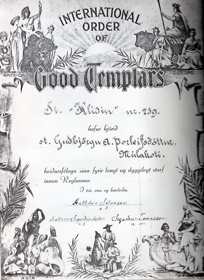 INTERNATIONAL
ORDER
OF
Good Templars
St. "Hlíðin" nr. 259.
hefur kjörið
st. Guðbjörgu A. Þorleifsdóttur
Múlakoti.
heiðursfélaga sinn fyrir langt og dyggilegt starf
innan Reglunnar.
Í trú, von og kærleika.